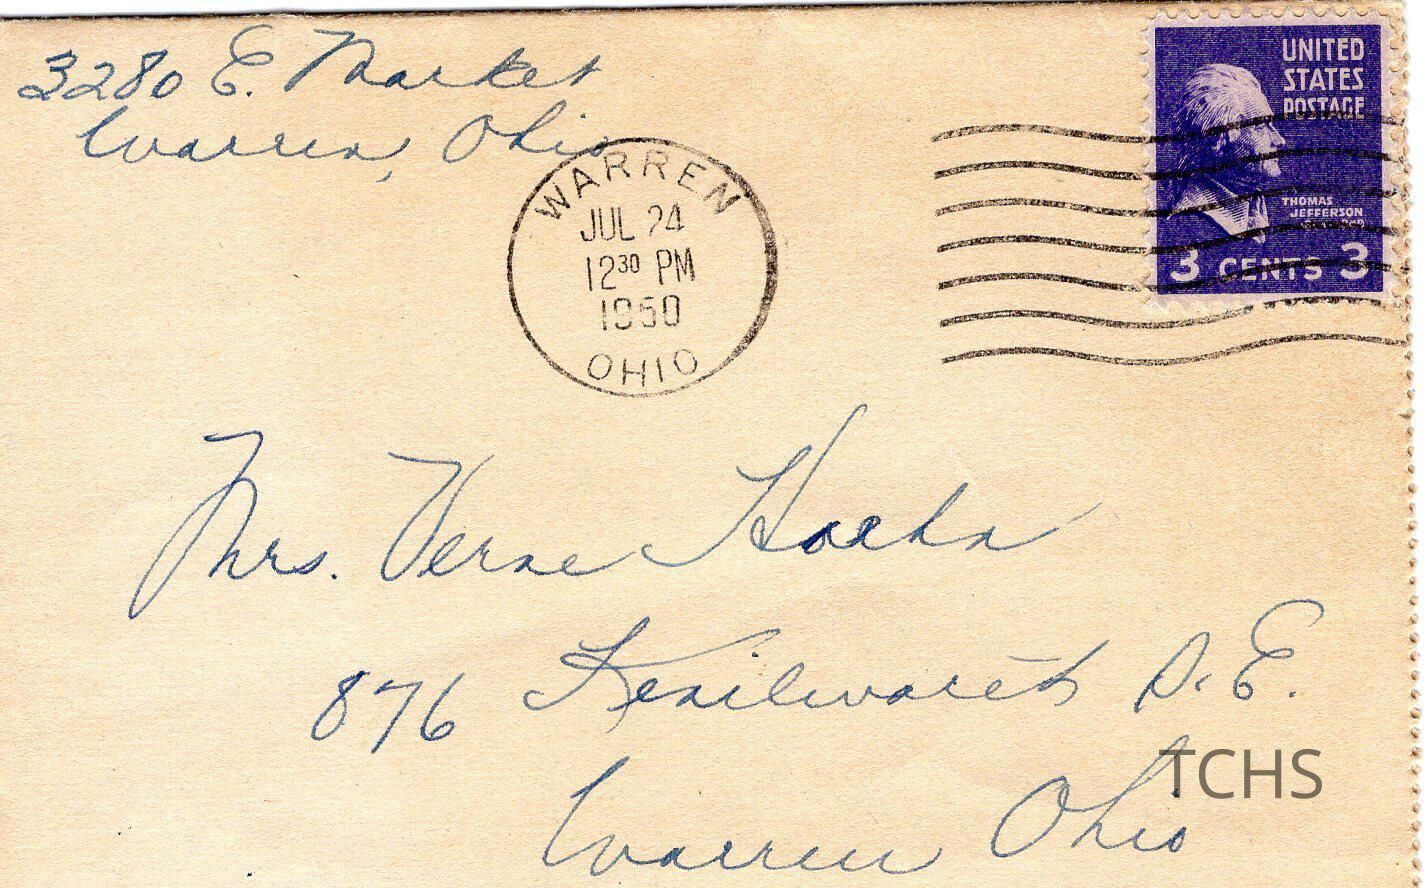 3280 E. Market
Warren, Ohio
WARREN
JUL 24
12 30 PM
1950
OHIO
UNITED
STATES
POSTAGE
THOMAS
JEFFERSON
3 CENTS 3
Mrs. Verne
876 Kenilworth S.E.
Warren Ohio
TCHS